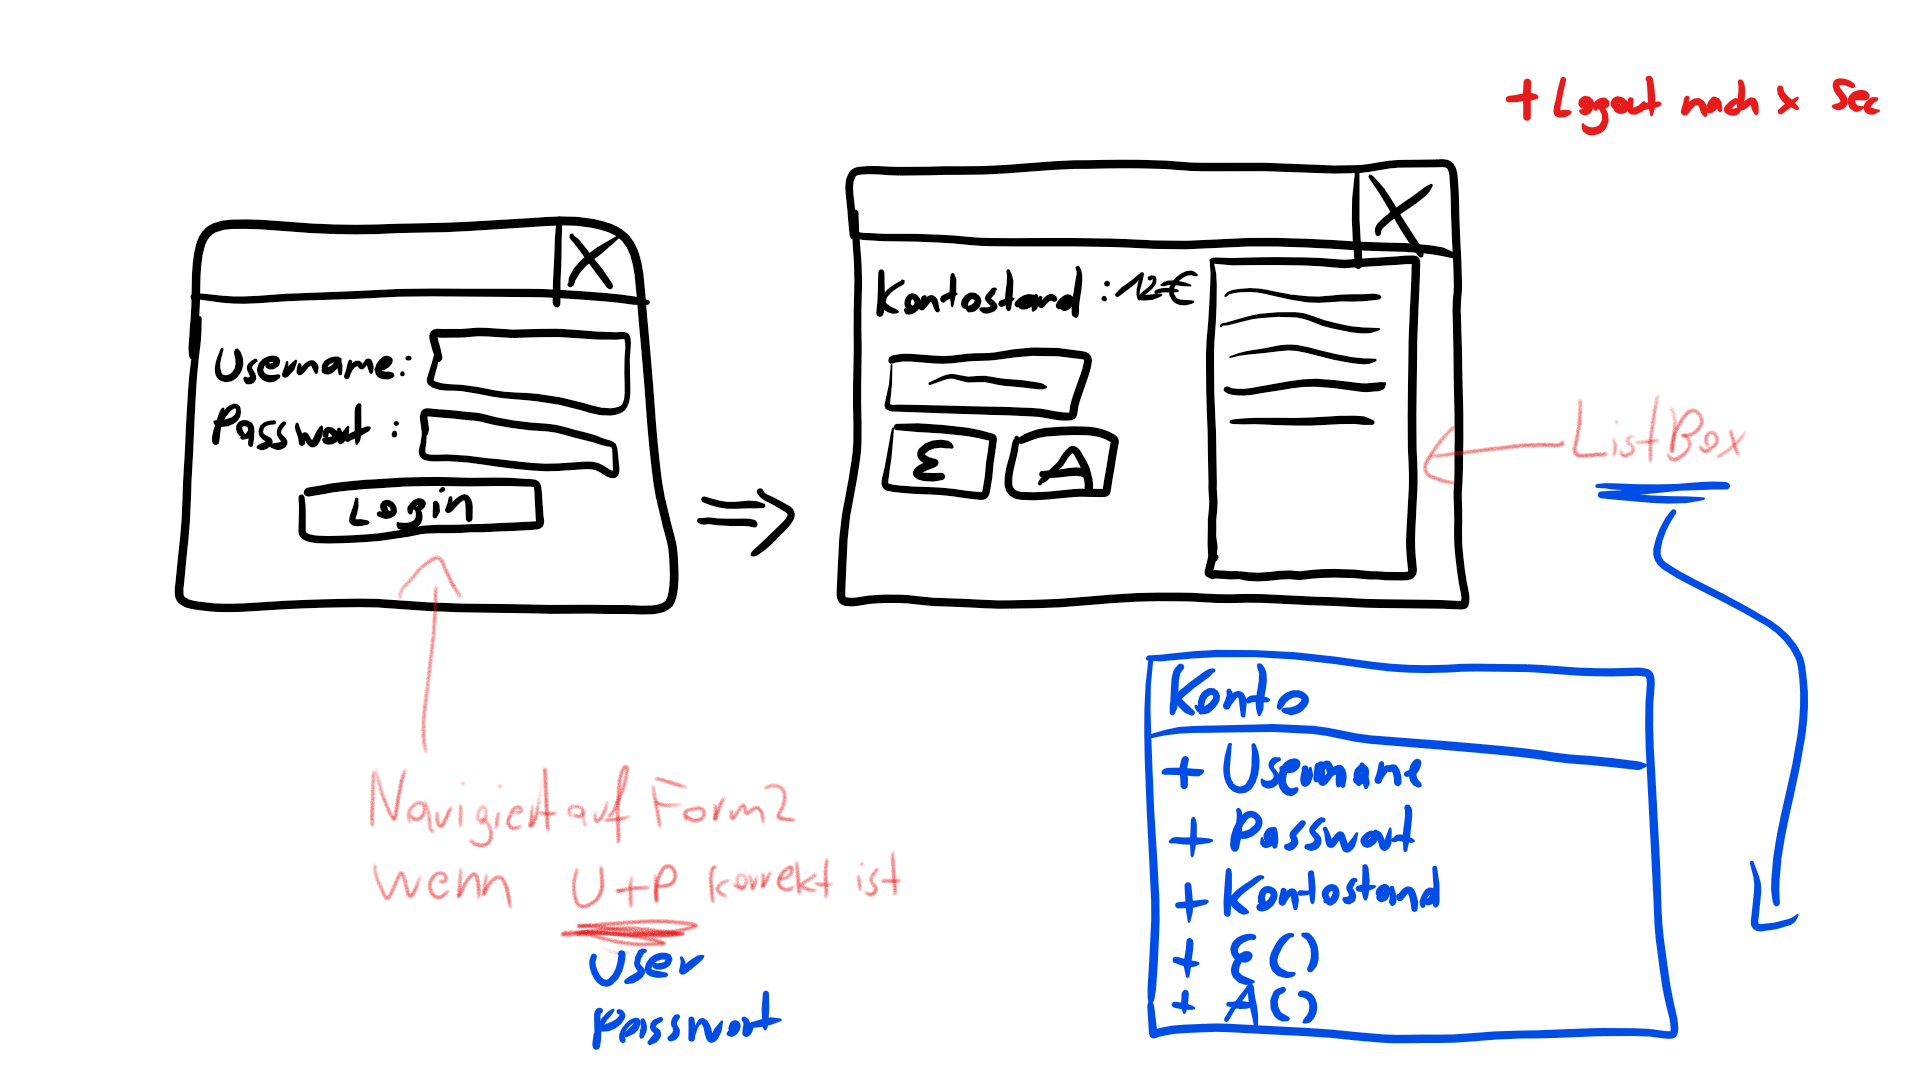 + Logout nach x Sec
X
Username:
Passwort :
Login
X
Kontostand : 12€
E
A
ListBox
Navigiert auf Form2
wenn U+P korrekt ist
User
Passwort
Konto
+ Username
+ Passwort
+ Kontostand
+ E()
+ A()